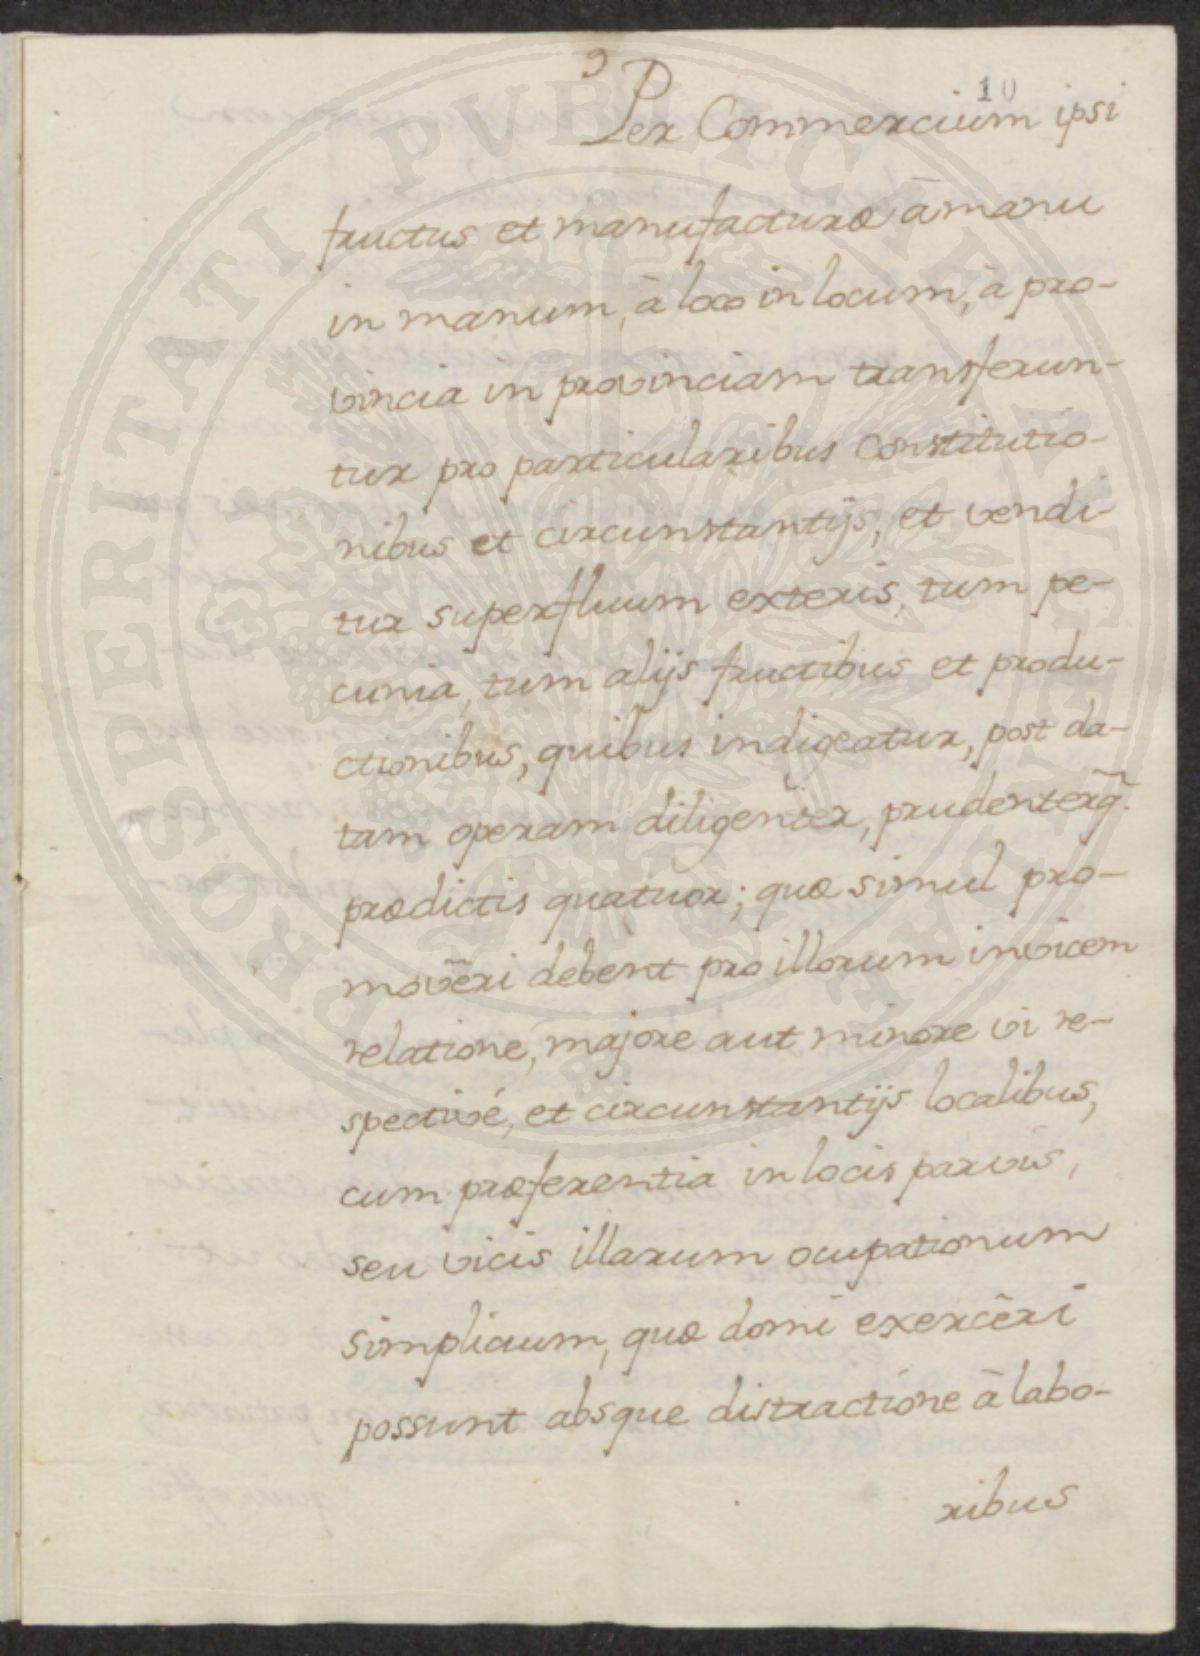 9
10
Per Commercium ipsi
fructus et manufacturæ à manu
in manum, à loco in locum, à pro-
vincia in provinciam transferun-
tur pro particularibus constitutio-
nibus et circunstantijs, et vendi-
tur superfluum exteris, tum pe-
cunia, tum alijs fructibus et produ-
ctionibus, quibus indigeatur, post da-
tam operam diligenter, prudenterq̃.
prædictis quatuor; quæ simul pro-
movēri debent pro illorum invicem
relatione, majore aut minore vi re-
spectivé, et circunstantijs localibus,
cum præferentia in locis parvis,
seu vicis illarum ocupationum
simplicium, quæ domi exercēri
possunt absque distractione à labo-
ribus
PROSPERITATI PVBLICAE